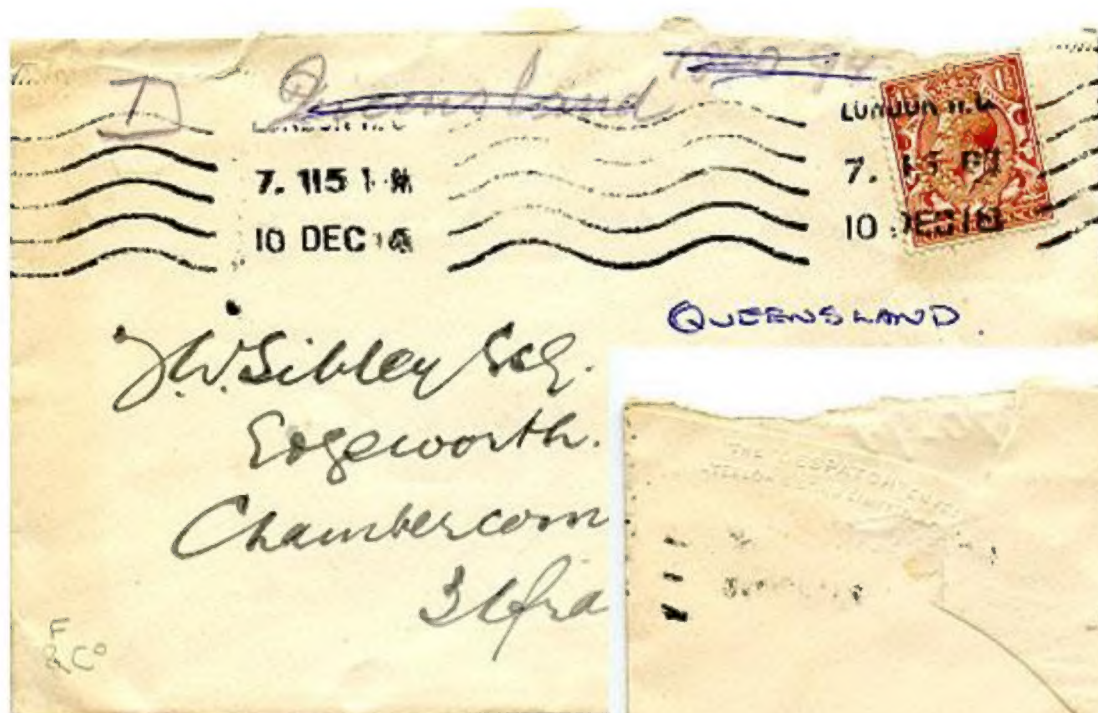 D Queensland
LONDON W.C
7. 115 PM
10 DEC
LONDON W.C
7. 15 PM
10 DEC 18
QUEENSLAND.
J.W. Sibley Esq.
Edgeworth.
Chambercom
Ilfra
F
& Co
THE DESPATCH